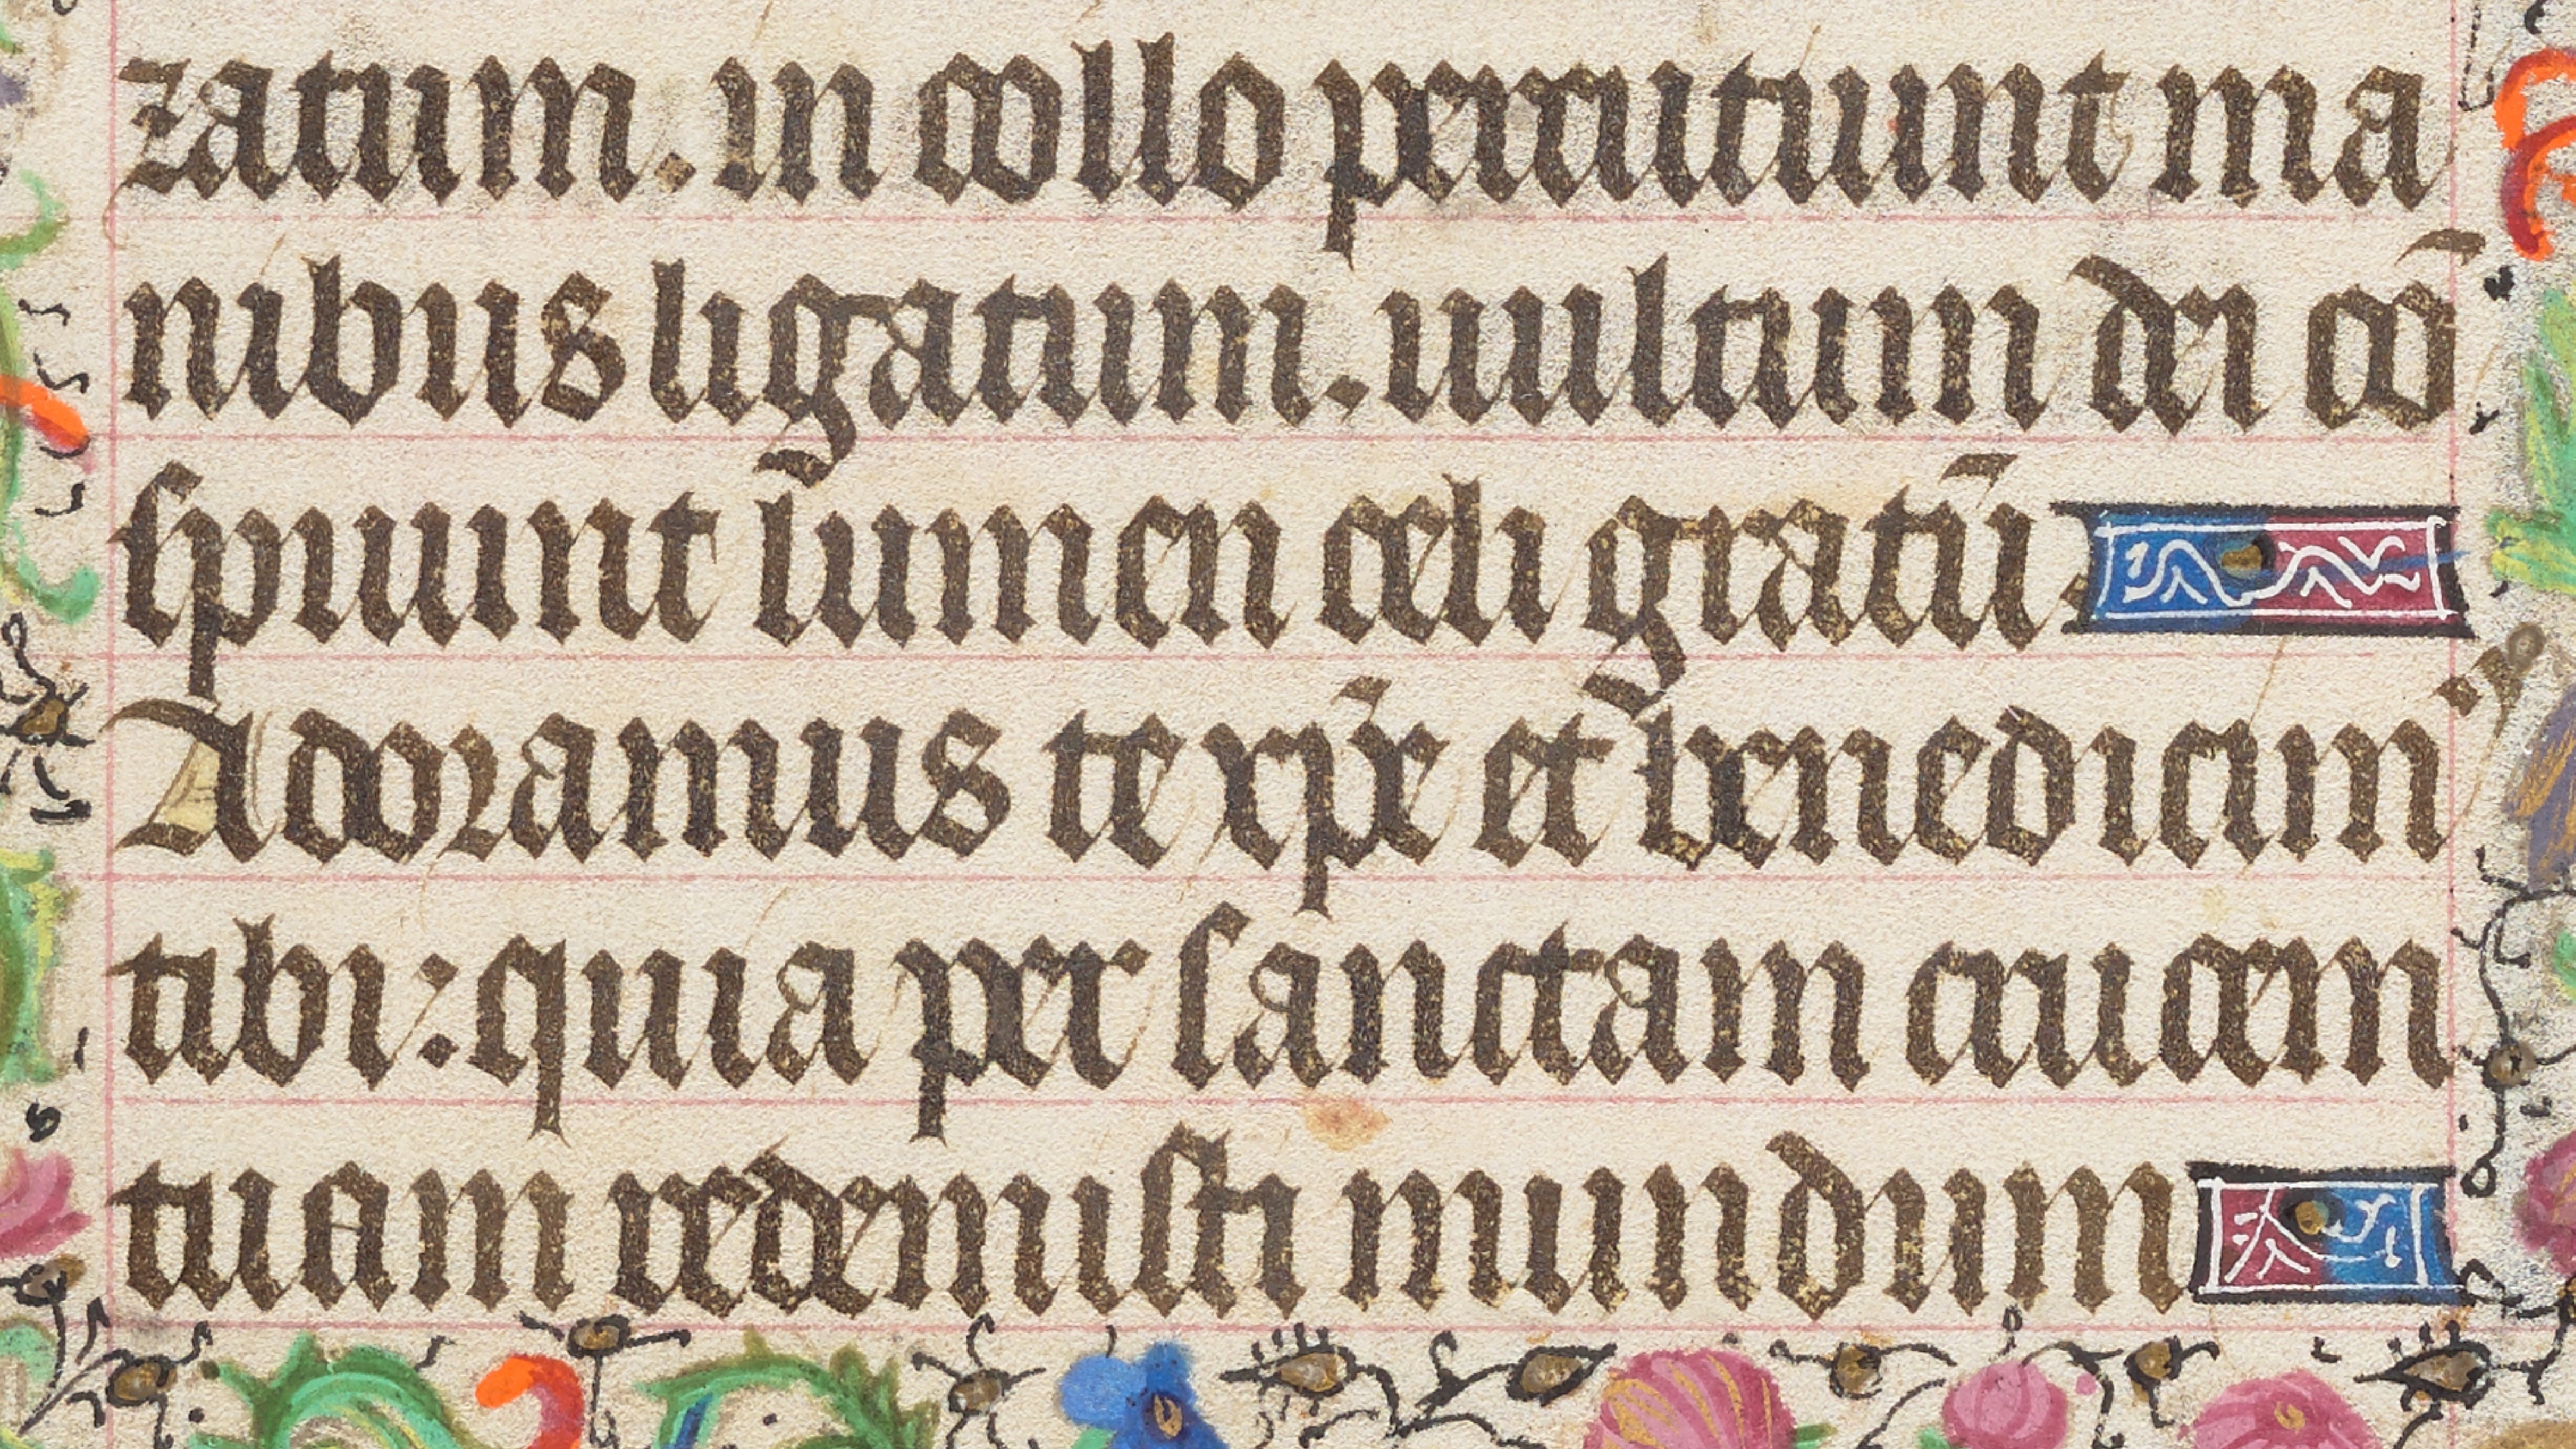 zatum. in collo percutiunt ma
nibus ligatum. uultum dei cō
spuunt lumen celi gratū.
Adoramus te xp̄e et benedicim⁹
tibi: quia per sanctam crucem
tuam redemisti mundum